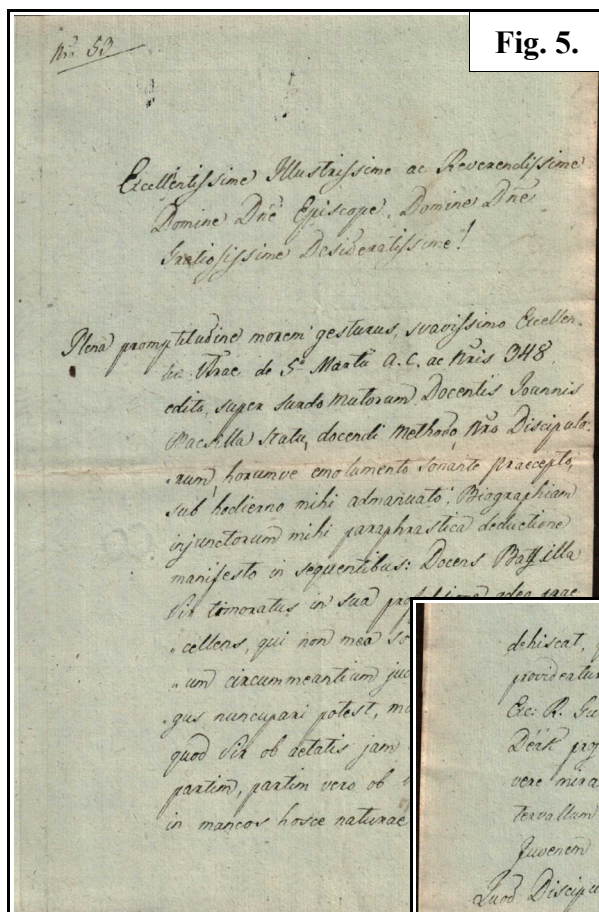 Fig. 5.
Nro 53
Excellentissime Illustrissime ac Reverendissime
Domine Dne Episcope, Domine Dne
Gratiosissime Desideratissime!
Plena promptitudine morem gesturus, svavissimo Excellen-
de 5a Martii a.c. ac Nris 348
edito, super surdo mutorum Docentis Joannis
statu, docendi methodo, Nro Discipulo-
rum, horumve emolumento sonante praecepto,
sub hodierno mihi admanuato, Biographiam
injunctorum mihi paraphrastica deductione
manifesto in sequentibus: Docens
Vir timoratus in sua adeo prae
cellens, qui non mea
um circummeantium
gus nuncupari potest,
quod Vir ob aetatis jam
partim, partim vero ob
in mancos hosce naturae
dehiscat,
provideatur
Exc: R. Gu
Deák
vere mira
tervallum
Juvenem
Quod Discipu